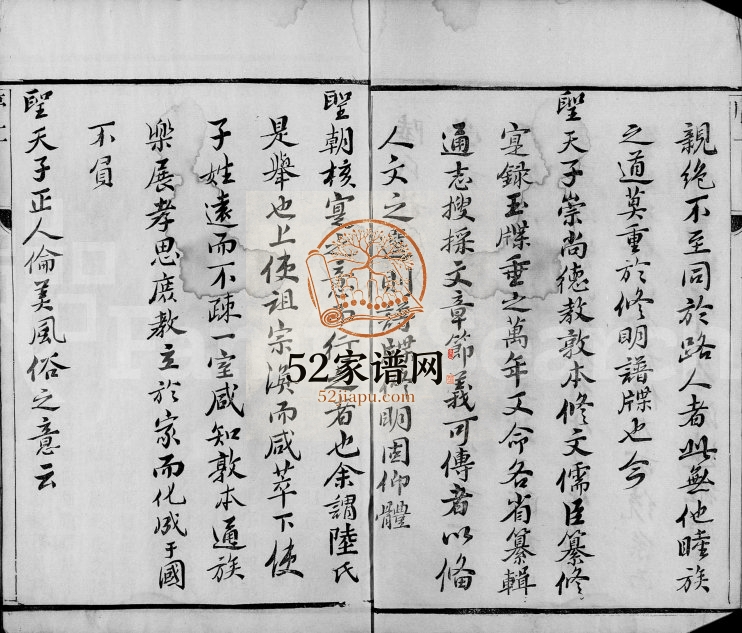 親絶不至同於路人者此無他睦族
之道莫重於修明譜牒也今
聖天子崇尚德教敦本修文儒臣纂修
寔録玉牒垂之萬年又命各省纂輯
通志搜採文章節義可傳者以俻
人文之則譜牒修明固仰體
聖朝核寔之意而行之者也余謂陸氏
是舉也上使祖宗渙而咸萃下使
子姓遠而不疎一室咸知敦本通族
樂展孝思庻教立於家而化成于國
不負
聖天子正人倫美風俗之意云
52家谱网
52jiapu.com